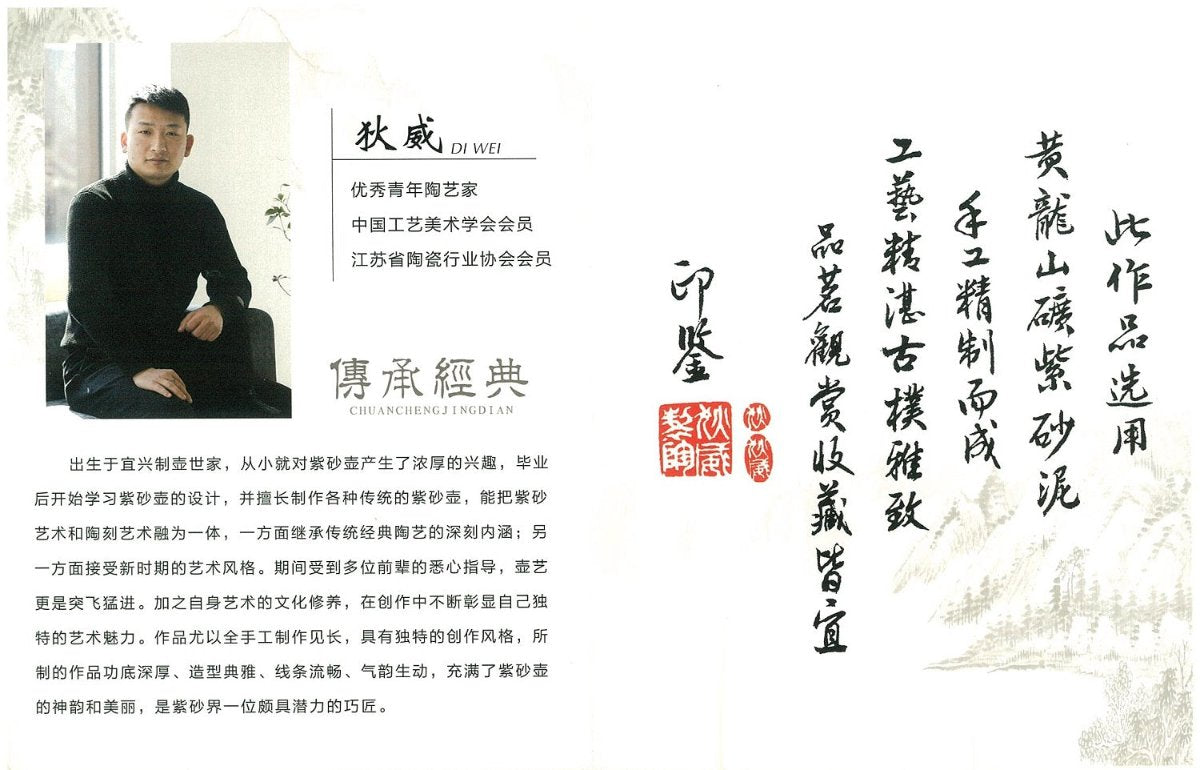 狄威 DI WEI
优秀青年陶艺家
中国工艺美术学会会员
江苏省陶瓷行业协会会员
傳承經典
CHUANCHENGJINGDIAN
出生于宜兴制壶世家，从小就对紫砂壶产生了浓厚的兴趣，毕业
后开始学习紫砂壶的设计，并擅长制作各种传统的紫砂壶，能把紫砂
艺术和陶刻艺术融为一体，一方面继承传统经典陶艺的深刻内涵；另
一方面接受新时期的艺术风格。期间受到多位前辈的悉心指导，壶艺
更是突飞猛进。加之自身艺术的文化修养，在创作中不断彰显自己独
特的艺术魅力。作品尤以全手工制作见长，具有独特的创作风格，所
制的作品功底深厚、造型典雅、线条流畅、气韵生动，充满了紫砂壶
的神韵和美丽，是紫砂界一位颇具潜力的巧匠。
此作品选用
黄龍山礦紫砂泥
手工精制而成
工藝精湛古樸雅致
品茗觀赏收藏皆宜
印鑒
狄威
製陶
狄
狄威